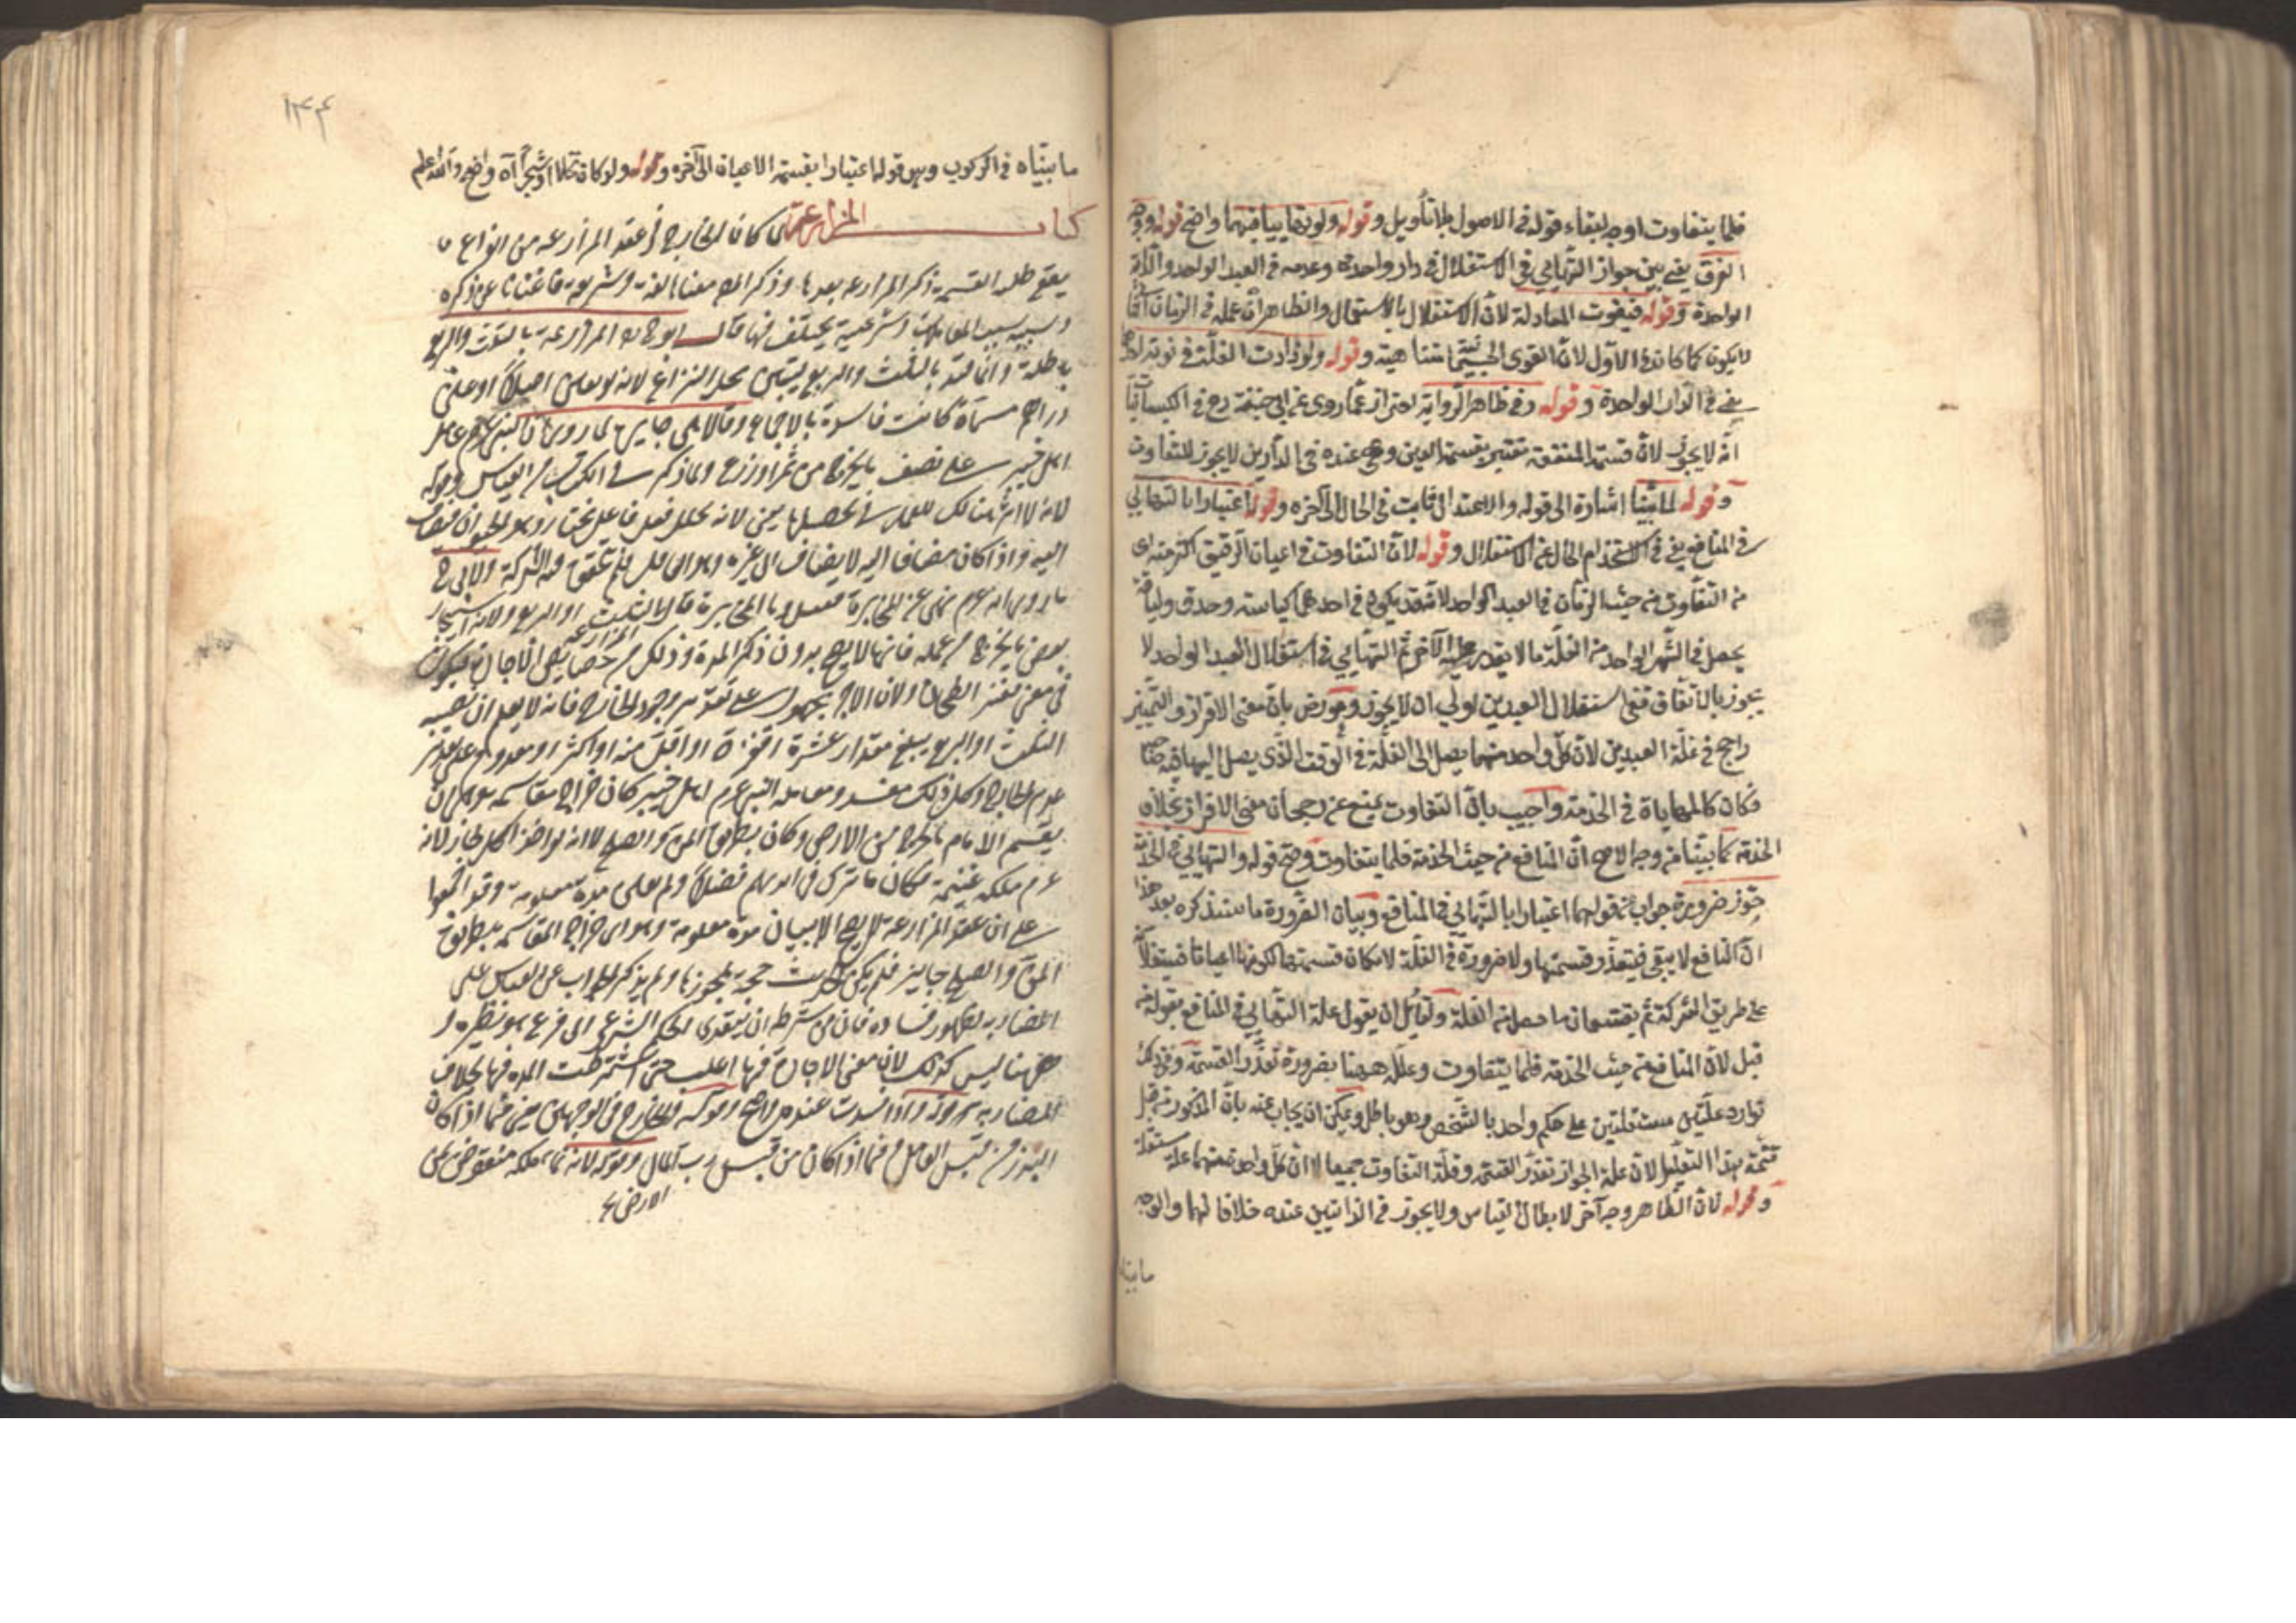 فلما يتفاوت اوجه لبقاء قوله في الاصول بلا تأويل وقوله ولو تهاييا فيهما واضح قوله ووجه
الفرق يعني بين جواز التهايي في الاستغلال في دار واحدة وعدمه في العبد الواحد والدابة
الواحدة وقوله فيفوت المعادلة لان الاستغلال بالاستعمال والظاهر ان عمله في الزمان الثاني
لا يكون كما كان في الاول لان القوى الجسمية متناهية وقوله ولو زادت الغلة في نوبة احدهما
يعني في الدار الواحدة وقوله وفي ظاهر الرواية احتراز عما روي عن ابي حنيفة رح في الكيسانيات
انه لا يجوز لان قسمة المنفعة تعتبر بقسمة العين وهي عنده في الدارين لا يجوز للتفاوت
وقوله لما بينا اشارة الى قوله والاعتدال ثابت في الحال الى آخره وقوله اعتبارا بالتهايي
في المنافع يعني في الاستخدام الخالي عن الاستغلال وقوله لان التفاوت في اعيان الرقيق اكثر منه اي
من التفاوت من حيث الزمان في العبد الواحد لانه قد يكون في احدهما كياسة وحذق ولباقة
يحصل في الشهر الواحد من الغلة ما لا يقدر عليه الآخر ثم التهايي في استغلال العبد الواحد لا
يجوز بالاتفاق ففي استغلال العبدين اولى ان لا يجوز وعورض بان معنى الافراز والتمييز
راجح في غلة العبدين لان كل واحد منهما يصل الى الغلة في الوقت الذي يصل اليها فيه صاحبه
فكان كالمهاياة في الخدمة واجيب بان التفاوت يمنع عن رجحان معنى الافراز بخلاف
الخدمة كما بينا من وجه الاصح ان المنافع من حيث الخدمة فلما يتفاوت وصح قوله والتهايي في الخدمة
جوز ضرورة جواب عن قولهما اعتبارا بالتهايي في المنافع وبيان الضرورة ما سنذكره بعد هذا
ان المنافع لا يبقى فيتعذر قسمتها ولا ضرورة في الغلة لامكان قسمتها لكونها اعيانا فيستغلان
على طريق الشركة ثم يقتسمان ما حصل من الغلة ولقائل ان يقول علل التهايي في المنافع بقوله من
قبل لان المنافع من حيث الخدمة فلما يتفاوت وعلله ههنا بضرورة تعذر القسمة وفي ذلك
توارد علتين مستقلتين على حكم واحد بالشخص وهو باطل ويمكن ان يجاب عنه بان المذكور من قبل
تتمة هذا التعليل لان علة الجواز تعذر القسمة وقلة التفاوت جميعا لا ان كل واحد منهما علة مستقلة
وقوله لان الظاهر وجه آخر لابطال القياس ولا يجوز في الدابتين عنده خلافا لهما والوجه
ما بيناه
١٣٤
ما بيناه في الركوب وهو قوله اعتبارا بقسمة الاعيان الى آخره وقوله ولو كان نخلا او شجرا آه واضح والله اعلم
كتاب المزارعة لما كان الخارج في عقد المزارعة من انواع ما
يقع فيه القسمة ذكر المزارعة بعدها وذكر المص معناها لغة وشريعة فاغنانا عن ذكره
وسببه سبب المعاملات وشرعيته مختلف فيها قال ابو ح ره المزارعة بالثلث والربع
باطلة وانما قيد بالثلث والربع ليتبين محل النزاع لانه لو لم يعين اصلا او عين
دراهم مسماة كانت فاسدة بالاجماع وقالا هي جايز لما روي ان النبي عم عامل
اهل خيبر على نصف ما يخرج من ثمر او زرع ولما ذكر في الكتاب من القياس وقوله
لانه لا اثر هناك للعمل في تحصيلها يعني لانه تخلل فعل فاعل مختار وهو الحيوان فيضاف
اليه واذا كان مضافا اليه لا يضاف الى غيره وهو العامل فلم يتحقق فيه الشركة ولابي ح
ما روي انه عم نهى عن المخابرة فقيل وما المخابرة قال المزارعة بالثلث او الربع ولانه استيجار
ببعض ما يخرج من عمله فانها لا يصح بدون ذكر المدة وذلك من خصايص الاجارات فيكون
في معنى قفيز الطحان ولان الاجر مجهول على تقدير وجود الخارج فانه لا يعلم ان نصيبه
الثلث او الربع يبلغ مقدار عشرة اقفزة او اقل منه او اكثر او معدوم على تقدير
عدم الخارج وكل ذلك مفسد ومعاملة النبي عم اهل خيبر كان خراج مقاسمة وهو ان
يقسم الامام ما يخرج من الارض وكان بطريق المن والصلح لانه لو اخذ الكل لجاز لانه
عم ملكه غنيمة فكان ما ترك في ايديهم فضلا ولم يعين مدة معلومة وقد اجمعوا
على ان عقد المزارعة لا يصح الا ببيان مدة معلومة وهو اي خراج المقاسمة بطريق
المن والصلح جايز فلم يكن الحديث حجة لمجوزها ولم يذكر الجواب عن القياس على
المضاربة لظهور فساده فان من شرطه ان يتعدى الحكم الشرعي الى فرع هو نظيره و
ههنا ليس كذلك لان معنى الاجارة فيها اغلب حتى اشترطت المدة فيها بخلاف
المضاربة وقوله واذا فسدت عنده واضح وقوله والخارج في الوجهين يعني فيما اذا كان
البذر من قبل العامل وفيما اذا كان من قبل رب المال وقوله لانه نماء ملكه منقوض بمن
الارض